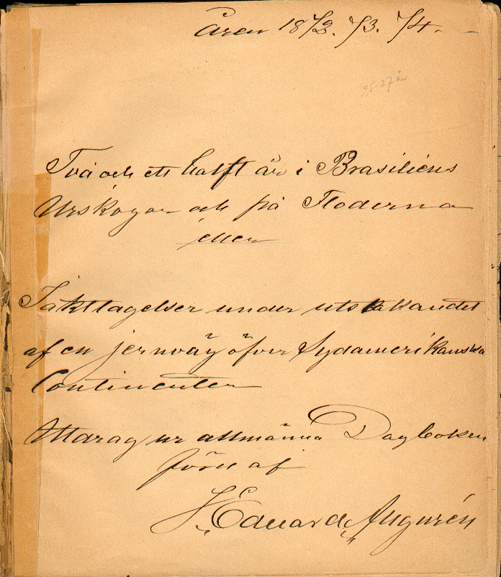 åren 1872. 73. 74.
Två och ett halft år i Brasiliens
Urskogar och på Floderna
eller
Iakttagelser under utstakandet
af en jernväg öfver Sydamerikanska
Continenten
Utdrag ur allmänna Dagboken
förd af
J. Eduard Aungurén